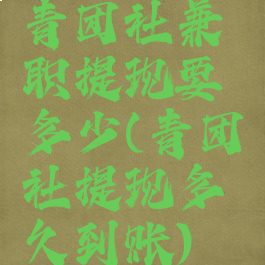 青团社兼
职提现要
多少(青团
社提现多
久到账)